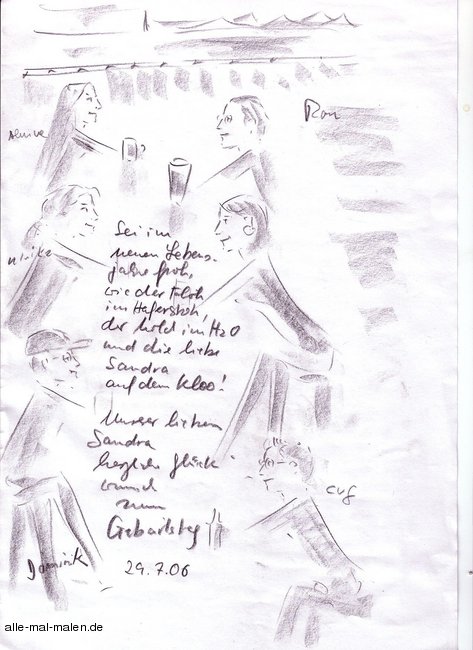 Ron
Sei im
neuen Lebens-
jahre froh,
wie der Floh
im Haferstroh,
der Mold im H2O
und die liebe
Sandra
auf dem Kloo!
Unserer lieben
Sandra
herzlichen Glück
wunsch
zum
Geburtstag!!
cuf
Dominik
29.7.06
alle-mal-malen.de